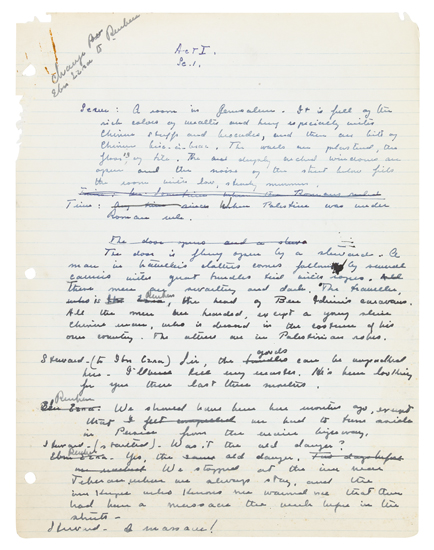 Change Ben
Ibn Ezra to Reuben
Act I.
Sc. 1.
Scene: A room in Jerusalem. It is full of the
rich colors of metals and hung especially with
Chinese stuffs and brocades, and there are bits of
Chinese bric-a-brac. The walls are plastered, the
floor is of tile. The deeply arched windows are
open and the noise of the street below fills
the room with low, steady murmur.
Time: when Palestine was under
Roman rule.
The door opens and a
The door is flung open by a steward. A
man in traveller's clothes comes followed by several
carriers with great bundles tied with ropes. All
these men are swarthy and dark. The traveller,
who is Reuben, the head of Ben caravans.
All the men are bearded, except a young
Chinese man, who is dressed in the costume of his
own country. The others are in Palestinian robes.
Steward - (to Ibn Ezra) Sir, the goods can be unpacked
here. I'll tell my master. He's been looking
for you these last three months.
Reuben
We should have been here months ago, except
that we had to turn aside
in Persia from the highway.
Steward - (startled). Was it the old danger?
Reuben - Yes, the same old danger.
We stopped at the inn near
where we always stay, and the
innkeeper who knows me warned me that there
had been a massacre the week before in the
streets -
Steward - A massacre!